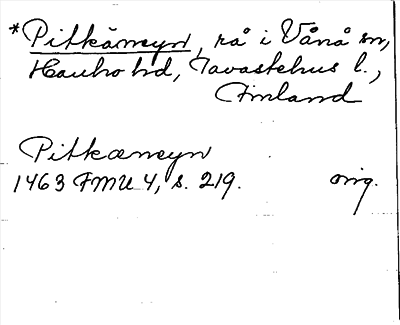 *Pitkämeyn, rå i Vånå sn,
Hauho hd, Tavastehus l.,
Finland
Pitkæmeyn
1463 FMU 4, s. 219. orig.